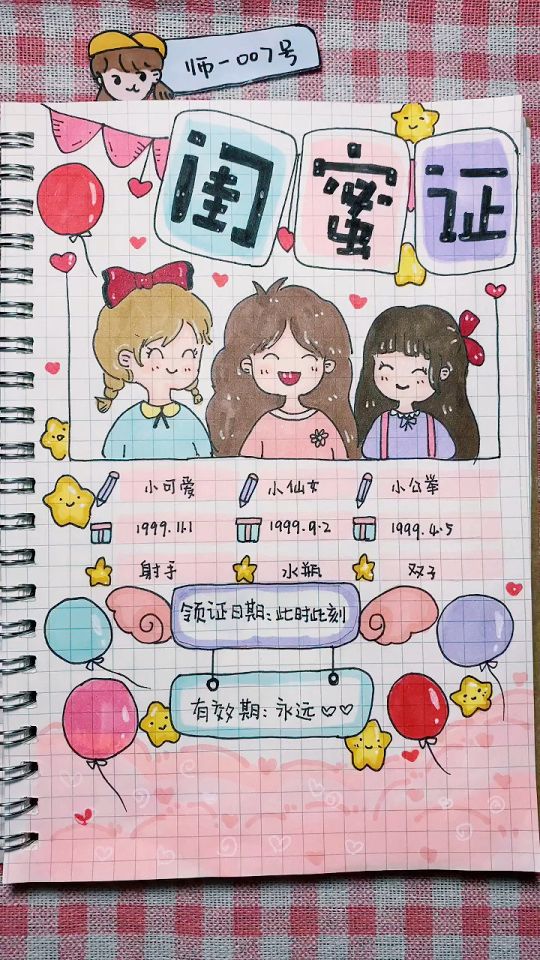 师-007号
闺蜜证
小可爱 小仙女 小公举
1999.11.1 1999.9.2 1999.4.5
射手 水瓶 双子
领证日期:此时此刻
有效期:永远♡♡